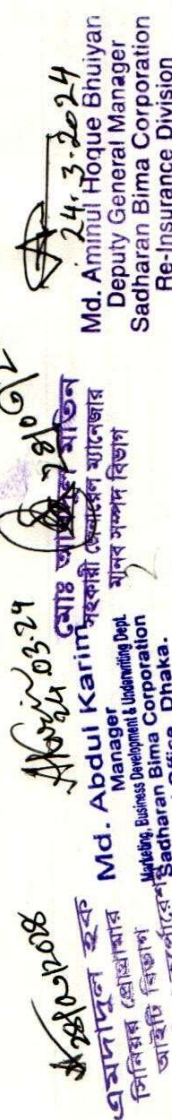 এমদাদুল হক
সিনিয়র প্রোগ্রামার
আইটি বিভাগ
24.03.24
Md. Abdul Karim
Manager
Marketing, Business Development & Underwriting Dept.
Sadharan Bima Corporation
Office, Dhaka.
মোঃ
সহকারী জেনারেল ম্যানেজার
মানব সম্পদ বিভাগ
24.3.2024
Md. Aminul Hoque Bhuiyan
Deputy General Manager
Sadharan Bima Corporation
Re-Insurance Division